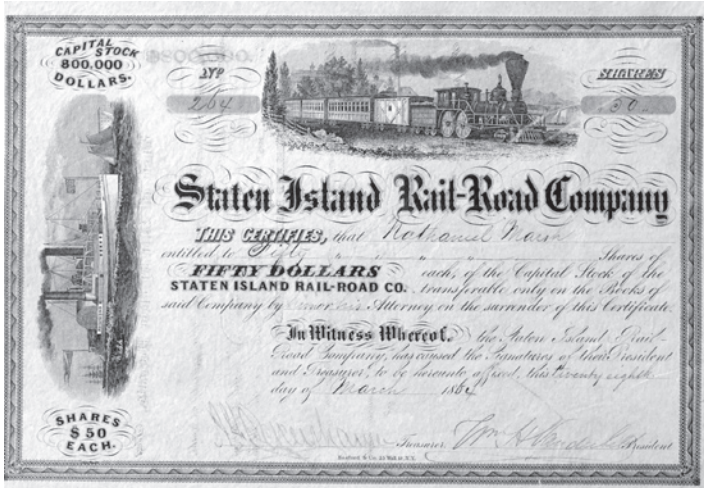 CAPITAL STOCK
800,000
DOLLARS.
Nº
264
SHARES
50
Staten Island Rail-Road Company
THIS CERTIFIES, that Nathaniel Marsh
entitled to Fifty Shares of
FIFTY DOLLARS each, of the Capital Stock of the
STATEN ISLAND RAIL-ROAD CO. transferable only on the Books of
said Company by Attorney on the surrender of this Certificate.
In Witness Whereof, the Staten Island Rail-
Road Company, has caused the Signatures of their President
and Treasurer, to be hereunto affixed, this twenty eighth
day of March 1864
SHARES
$50
EACH.
Treasurer. Wm H Vanderbilt President